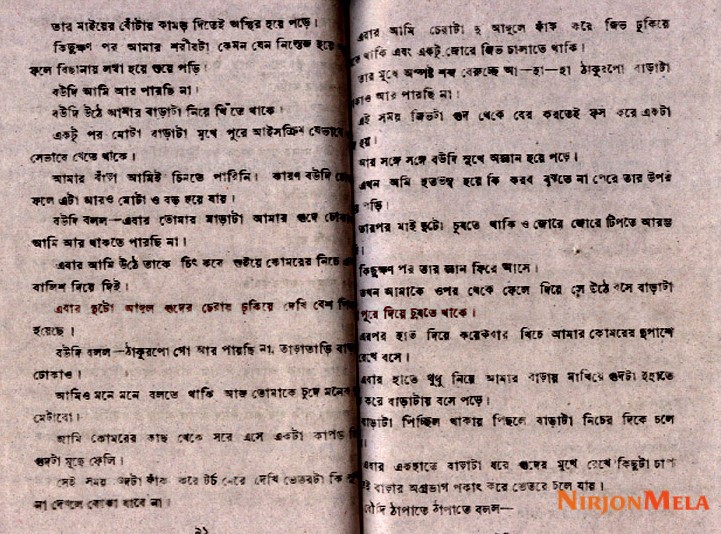 তার মাইয়ের বোঁটায় কামড় দিতেই অস্থির হয়ে পড়ে।
কিছুক্ষণ পর আমার শরীরটা কেমন যেন নিস্তেজ হয়ে
ফলে বিছানায় লম্বা হয়ে শুয়ে পড়ি।
বউদি আমি আর পারছি না।
বউদি উঠে আমার বাড়াটা নিয়ে খিঁচতে থাকে।
একটু পর মোটা বাড়াটা মুখে পুরে আইসক্রিম যেভাবে
সেভাবে খেতে থাকে।
আমার বাঁড়া আমিই চিনতে পারিনি। কারণ বউদি
ফলে এটা আরও মোটা ও বড় হয়ে যায়।
বউদি বলল—এবার তোমার বাড়াটা আমার গুদে
আমি আর থাকতে পারছি না।
এবার আমি উঠে তাকে চিৎ করে শুইয়ে কোমরের নিচে
বালিশ দিয়ে দিই।
এবার দুটো আঙ্গুল গুদের চেরায় ঢুকিয়ে দেখি বেশ
হয়েছে।
বউদি বলল—ঠাকুরপো গো আর পারছি না, তাড়াতাড়ি
ঢোকাও।
আমিও মনে মনে বলতে থাকি আজ তোমাকে চুদে মনের
মেটাবো।
আমি কোমরের কাছ থেকে সরে এসে একটা কাপড়
গুদটা মুছে ফেলি।
সেই সময় গুদটা ফাঁক করে টর্চ মেরে দেখি ভেতরটা কি
না দেখলে বোঝা যাবে না।
২১
এবার আমি চেরাটা দু আঙ্গুলে ফাঁক করে জিভ ঢুকিয়ে
থাকি এবং একটু জোরে জিভ চালাতে থাকি।
তার মুখে অস্পষ্ট শব্দ বেরুচ্ছে আ—হা—হা ঠাকুরপো বাড়াটা
আর পারছি না।
এই সময় জিভটা গুদ থেকে বের করতেই ফস করে একটা
হয়।
আর সঙ্গে সঙ্গে বউদি সুখে অজ্ঞান হয়ে পড়ে।
এখন আমি হতভম্ব হয়ে কি করব বুঝতে না পেরে তার উপর
পড়ি।
তারপর মাই দুটো চুষতে থাকি ও জোরে জোরে টিপতে আরম্ভ
কিছুক্ষণ পর তার জ্ঞান ফিরে আসে।
তখন আমাকে ওপর থেকে ফেলে দিয়ে সে উঠে বসে বাড়াটা
পুরে দিয়ে চুষতে থাকে।
এরপর হাত দিয়ে কয়েকবার খিচে আমার কোমরের দুপাশে
রেখে বসে।
এবার হাতে থুথু নিয়ে আমার বাড়ায় মাখিয়ে গুদটা দুহাতে
করে বাড়াটায় বসে পড়ে।
বাড়াটা পিচ্ছিল থাকায় পিছলে বাড়াটা নিচের দিকে চলে
এবার একহাতে বাড়াটা ধরে গুদের মুখে রেখে কিছুটা চাপ
বাড়ার অগ্রভাগ পকাৎ করে ভেতরে চলে যায়।
বৌদি ঠাপাতে ঠাপাতে বলল—
NIRJONMELA